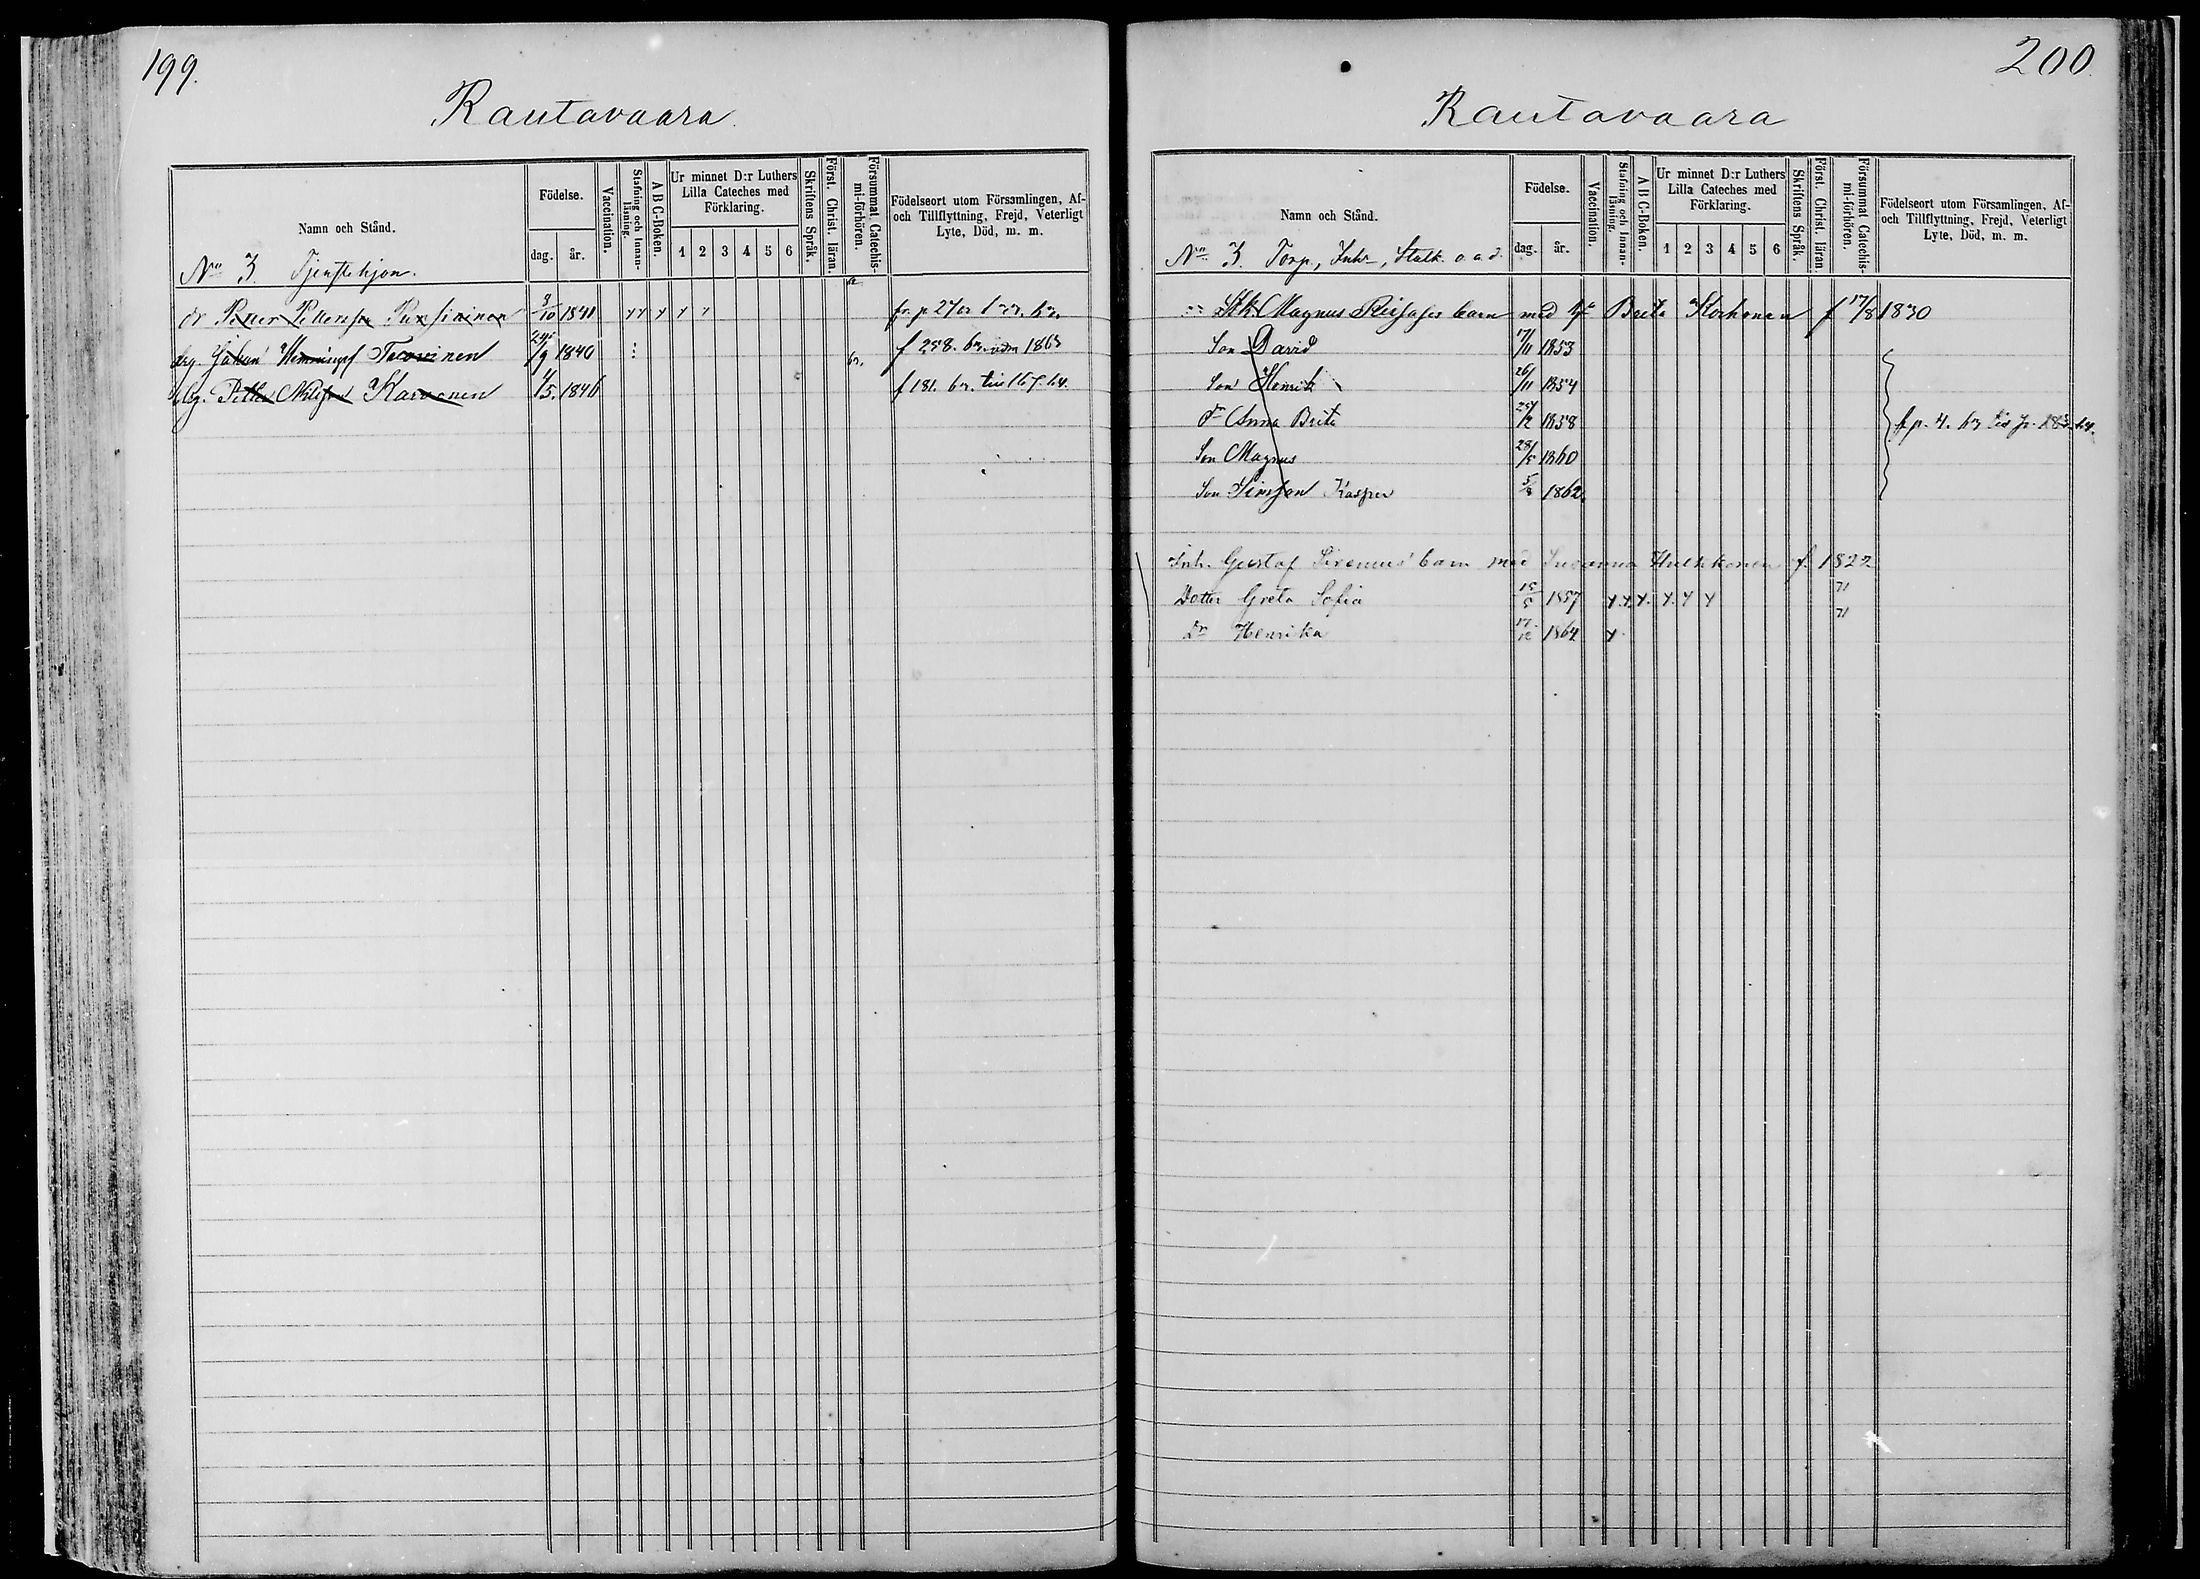 199.
Rautavaara
Namn och Stånd.
Födelse.
dag. år.
Vaccination.
Stafning och Innanläsning.
A B C-Boken.
Ur minnet D:r Luthers Lilla Cateches med Förklaring.
1 2 3 4 5 6
Skriftens Språk.
Först. Christ. läran.
Försummat Catechismi-förhören.
Födelseort utom Församlingen, Af- och Tillflyttning, Frejd, Veterligt Lyte, Död, m. m.
No 3 Tjenstehjon.
dr Petter Pettersson 3/10 1841
drg. Johan Hemmingss 1/9 1840 f 258. 1863
drg. Petter Nilsson Karvonen 1/5. 1846 f 181. 63. till 167. 64.
200.
Rautavaara
Namn och Stånd.
Födelse.
dag. år.
Vaccination.
Stafning och Innanläsning.
A B C-Boken.
Ur minnet D:r Luthers Lilla Cateches med Förklaring.
1 2 3 4 5 6
Skriftens Språk.
Först. Christ. läran.
Försummat Catechismi-förhören.
Födelseort utom Församlingen, Af- och Tillflyttning, Frejd, Veterligt Lyte, Död, m. m.
No 3. Torp., Inh-, Statk. o.a.d.
Magnus barn med Brita Korhonen f 17/8 1830
Son David 17/11 1853
Son Henrik 26/11 1854
dr Anna Brita 25/2 1858 f p. 4. 63
Son Magnus 28/5 1860
Son Simson Kasper 5/8 1862
Inh. Gustaf Sirenius' barn med Susanna Hulkkonen f. 1822
Dotter Greta Sofia 15/5 1857 71
Dr Henrika 17/12 1864 71